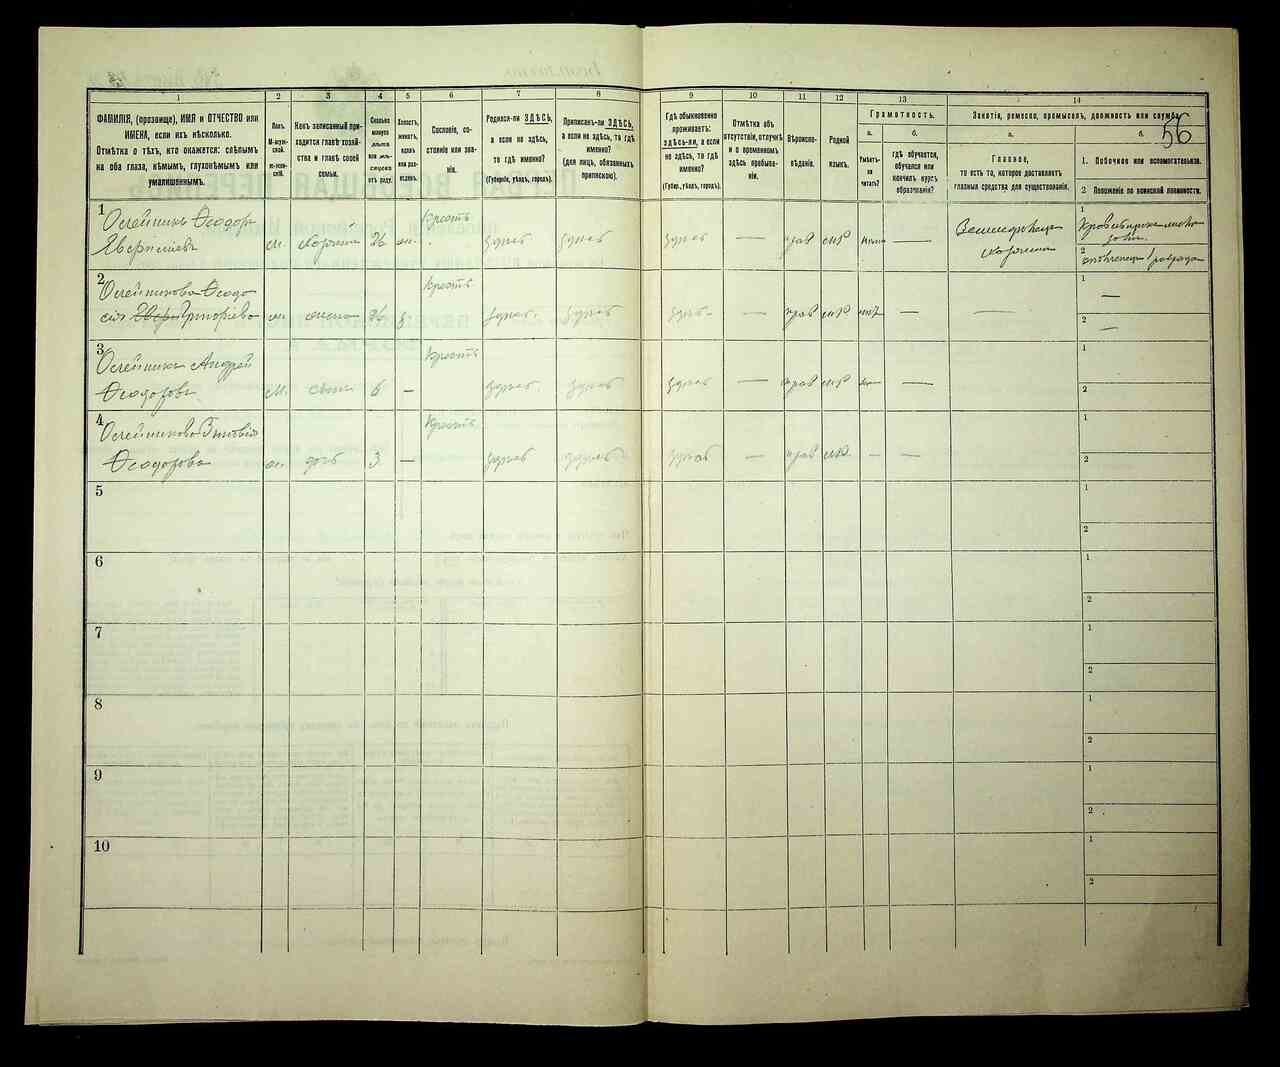 56
1 2 3 4 5 6 7 8 9 10 11 12 13 14
ФАМИЛІЯ, (прозвище), ИМЯ и ОТЧЕСТВО или
ИМЕНА, если ихъ нѣсколько.
Отмѣтка о тѣхъ, кто окажется: слѣпымъ
на оба глаза, нѣмымъ, глухонѣмымъ или
умалишеннымъ.
Полъ.
М-муж-
ской.
ж-жен-
скій.
Какъ записанный при-
ходится главѣ хозяй-
ства и главѣ своей
семьи.
Сколько
минуло
лѣтъ
или мѣ-
сяцевъ
отъ роду.
Холостъ,
женатъ,
вдовъ
или раз-
веденъ.
Сословіе, со-
стояніе или зва-
ніе.
Родился-ли ЗДѢСЬ,
а если не здѣсь,
то гдѣ именно?
(Губернія, уѣздъ, городъ).
Приписанъ-ли ЗДѢСЬ,
а если не здѣсь, то гдѣ
именно?
(для лицъ, обязанныхъ
припискою).
Гдѣ обыкновенно
проживаетъ:
здѣсь-ли, а если
не здѣсь, то гдѣ
именно?
(Губер., уѣздъ, городъ).
Отмѣтка объ
отсутствіи, отлучкѣ
и о временномъ
здѣсь пребыва-
ніи.
Вѣроиспо-
вѣданіе.
Родной
языкъ.
Грамотность.
а. б.
Умѣетъ-
ли
читать?
гдѣ обучается,
обучался или
кончилъ курсъ
образованія?
Занятіе, ремесло, промыселъ, должность или служба.
а. б.
Главное,
то есть то, которое доставляетъ
главныя средства для существованія.
1. Побочное или вспомогательное.
2 Положеніе по воинской повинности.
1
Олейникъ Ѳеодоръ Крестъ 1
м. хозяинъ 26 жн. здѣсь здѣсь здѣсь — прав мр — 2
2
Олейникова Ѳеодо Крестъ 1 —
сія Григорієва ж жена здѣсь здѣсь здѣсь — прав мр — — 2 —
3
Олейникъ Андрей Крестъ 1
Ѳеодоровъ м. сынъ 6 — здѣсь здѣсь здѣсь — прав мр — 2
4
Олейникова Крестъ 1
Ѳеодорова ж. дочь 3 — здѣсь здѣсь здѣсь — прав мр. — — 2
5 1
2
6 1
2
7 1
2
8 1
2
9 1
2
10 1
2